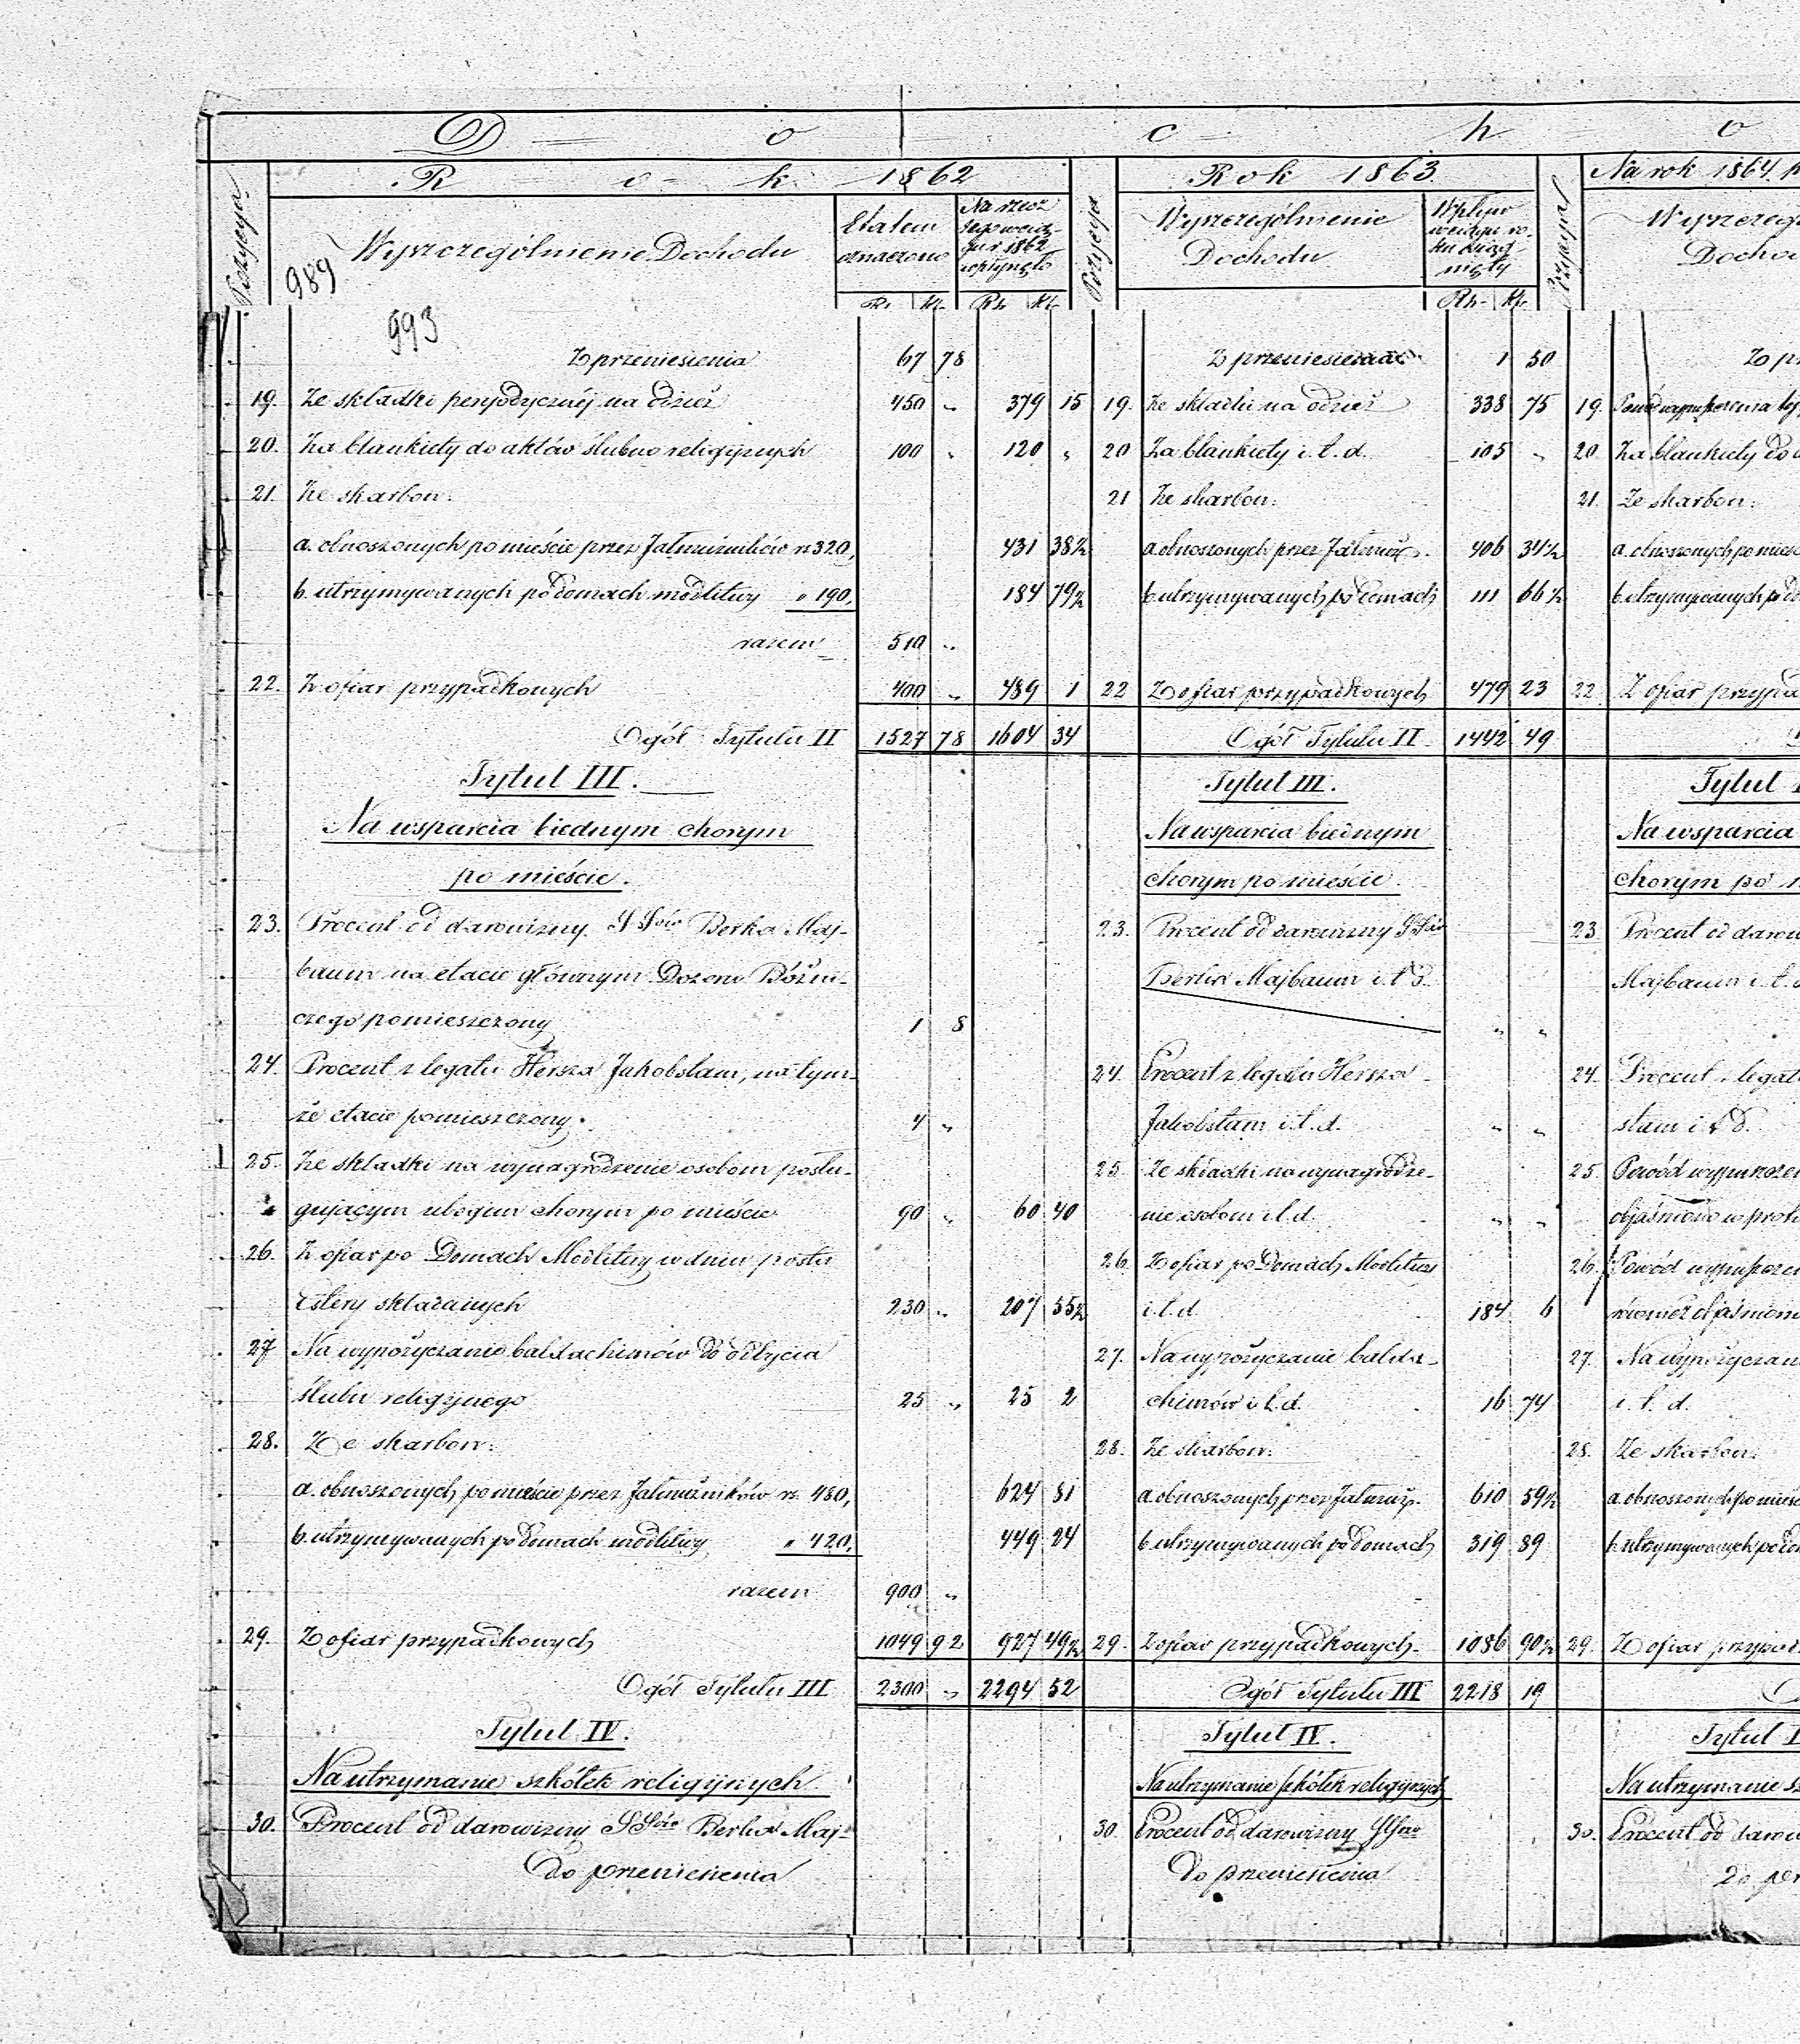 D o c h o
R o k 1862 Rok 1863. Na rok 1864
Pozycya Wyszczególnienie Dochodu Etatem oznaczono Na rzecz tego wciągu r 1862 wpłynęło Pozycya Wyszczególnienie Dochodu Wpływ wciągu roku osiągnięty Pozycya
989
Rs. Kp. Rs. Kp. Rs. Kp.
993
Z przeniesienia 67 78 Z przeniesienia 1 50
19. Ze składki peryodycznéj na odzież 450 „ 379 15 19. Ze składki na odzież 338 75 19.
20. Za blankiety do aktów ślubno religijnych 100 „ 120 „ 20 Za blankiety i.t.d. 105 „ 20 Za blankiety do
21. Ze skarbon: 21 Ze skarbon: 21. Ze skarbon:
a. obnoszonych po mieście przez Jałmużników rs 320, 431 38½ a. obnoszonych przez Jałmuż. 406 34½ a. obnoszonych po mieś
b. utrzymywanych po domach modlitwy „ 190, 184 79½ b. utrzymywanych po domach 111 66½ b. utrzymywanych po do
razem 510 „
22. Z ofiar przypadkowych 400 „ 489 1 22 Z ofiar przypadkowych 479 23 22 Z ofiar przypa
Ogół Tytułu II 1527 78 1604 34 Ogół Tytułu II 1442 49
Tytuł III. Tytuł III. Tytuł
Na wsparcia biednym chorym Na wsparcia biednym Na wsparcia
po mieście. chorym po mieście. chorym po
23. Procent od darowizny SSów Berka Maj- 23. Procent od darowizny SSów 23 Procent od darow
baum na etacie głównym Dozoru Bóżni- Berka Majbaum i.t.d. Majbaum i.t.d
czego pomieszczony 1 8 „ „
24. Procent z legatu Hersza Jakobstam, na tym- 24. Procent z legatu Hersza 24. Procent z legat
że etacie pomieszczony. 4 „ Jakobstam i.t.d. „ „ stam i t d.
25. Ze składki na wynagrodzenie osobom posłu- 25. Ze składki na wynagrodze- 25. Powód wypuszczen
gującym ubogim chorym po mieście 90 „ 60 40 nie osobom i.t.d. „ „ objaśniono w prot
26. Z ofiar po Domach Modlitwy w dniu postu 26. Z ofiar po Domach Modlitwy 26. Powód wypuszczen
Estery składanych 230 „ 207 55½ i.t.d. 184 6 również objaśniono
27 Na wypożyczanie baldachimów do odbycia 27. Na wypożyczanie balda- 27. Na wypożyczan
ślubu religijnego 25 „ 25 2 chimów i.t.d. 16 74 i. t. d.
28. Ze skarbon: 28. Ze skarbon: 28. Ze skarbon:
a. obnoszonych po mieście przez Jałmużników rs. 480, 624 81 a. obnoszonych przez Jałmuż. 610 59½ a. obnoszonych po mieś
b. utrzymywanych po domach modlitwy „ 420, 449 24 b. utrzymywanych po domach 319 89 b. utrzymywanych po do
razem 900 „
29. Z ofiar przypadkowych 1049 92 927 49½ 29. Z ofiar przypadkowych 1086 90½ 29. Z ofiar przypad
Ogół Tytułu III 2300 „ 2294 52 Ogół Tytułu III 2218 19
Tytuł IV. Tytuł IV. Tytuł
Na utrzymanie szkółek religijnych Na utrzymanie szkółek religijnych Na utrzymanie
30. Procent od darowizny SSów Berka Maj- 30. Procent od darowizny SSów 30. Procent od darow
Do przeniesienia Do przeniesienia Do